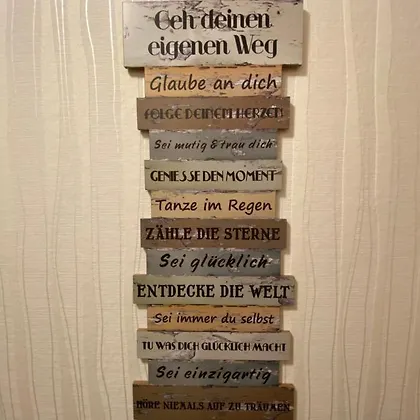 Geh deinen
eigenen Weg
Glaube an dich
FOLGE DEINEM HERZEN
Sei mutig & trau dich
GENIESSE DEN MOMENT
Tanze im Regen
ZÄHLE DIE STERNE
Sei glücklich
ENTDECKE DIE WELT
Sei immer du selbst
TU WAS DICH GLÜCKLICH MACHT
Sei einzigartig
HÖRE NIEMALS AUF ZU TRÄUMEN